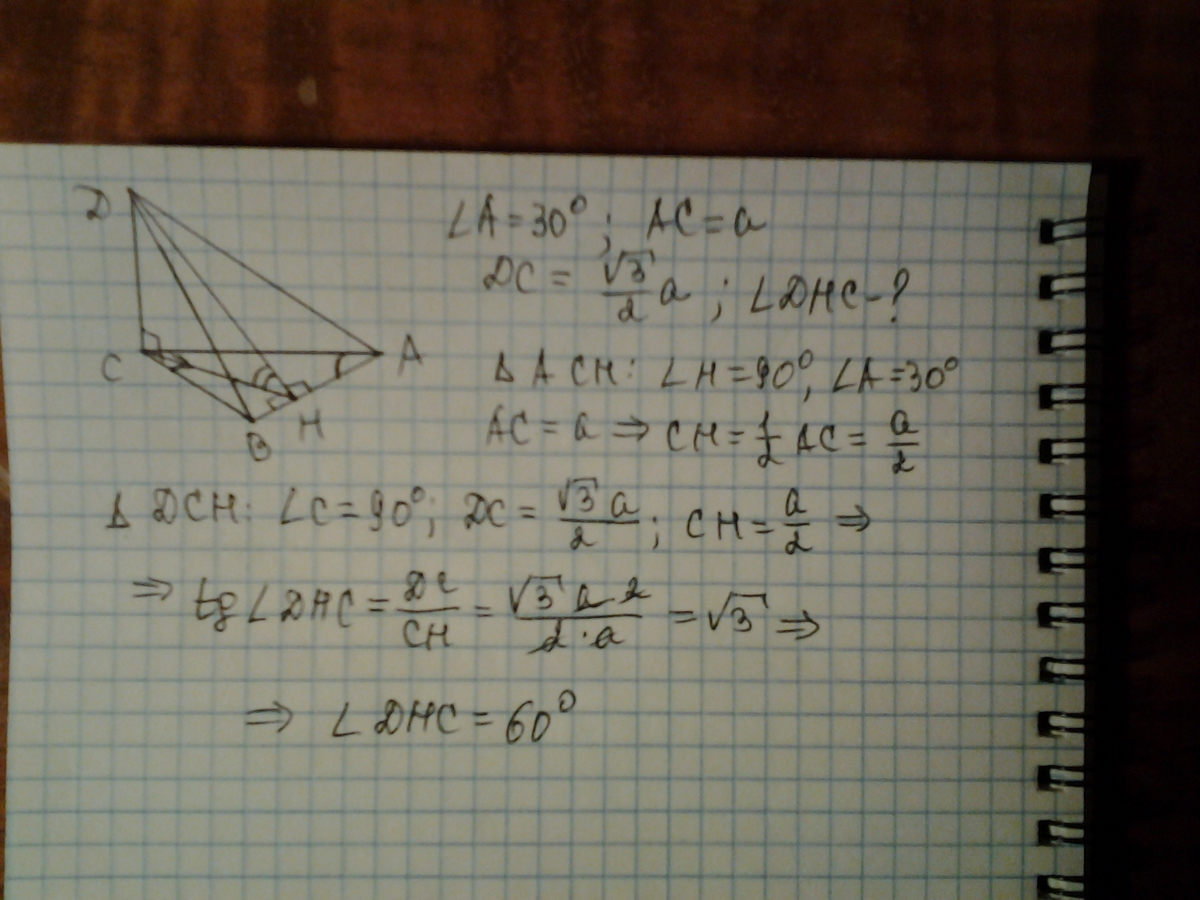 D
C
B
H
A
∠A = 30°; AC = a
DC = √3/2 a; ∠DHC - ?
Δ ACH: ∠H = 90°, ∠A = 30°
AC = a ⇒ CH = 1/2 AC = a/2
Δ DCH: ∠C = 90°; DC = √3 a/2; CH = a/2 ⇒
⇒ tg ∠DHC = DC/CH = √3 a 2/2·a = √3 ⇒
⇒ ∠DHC = 60°